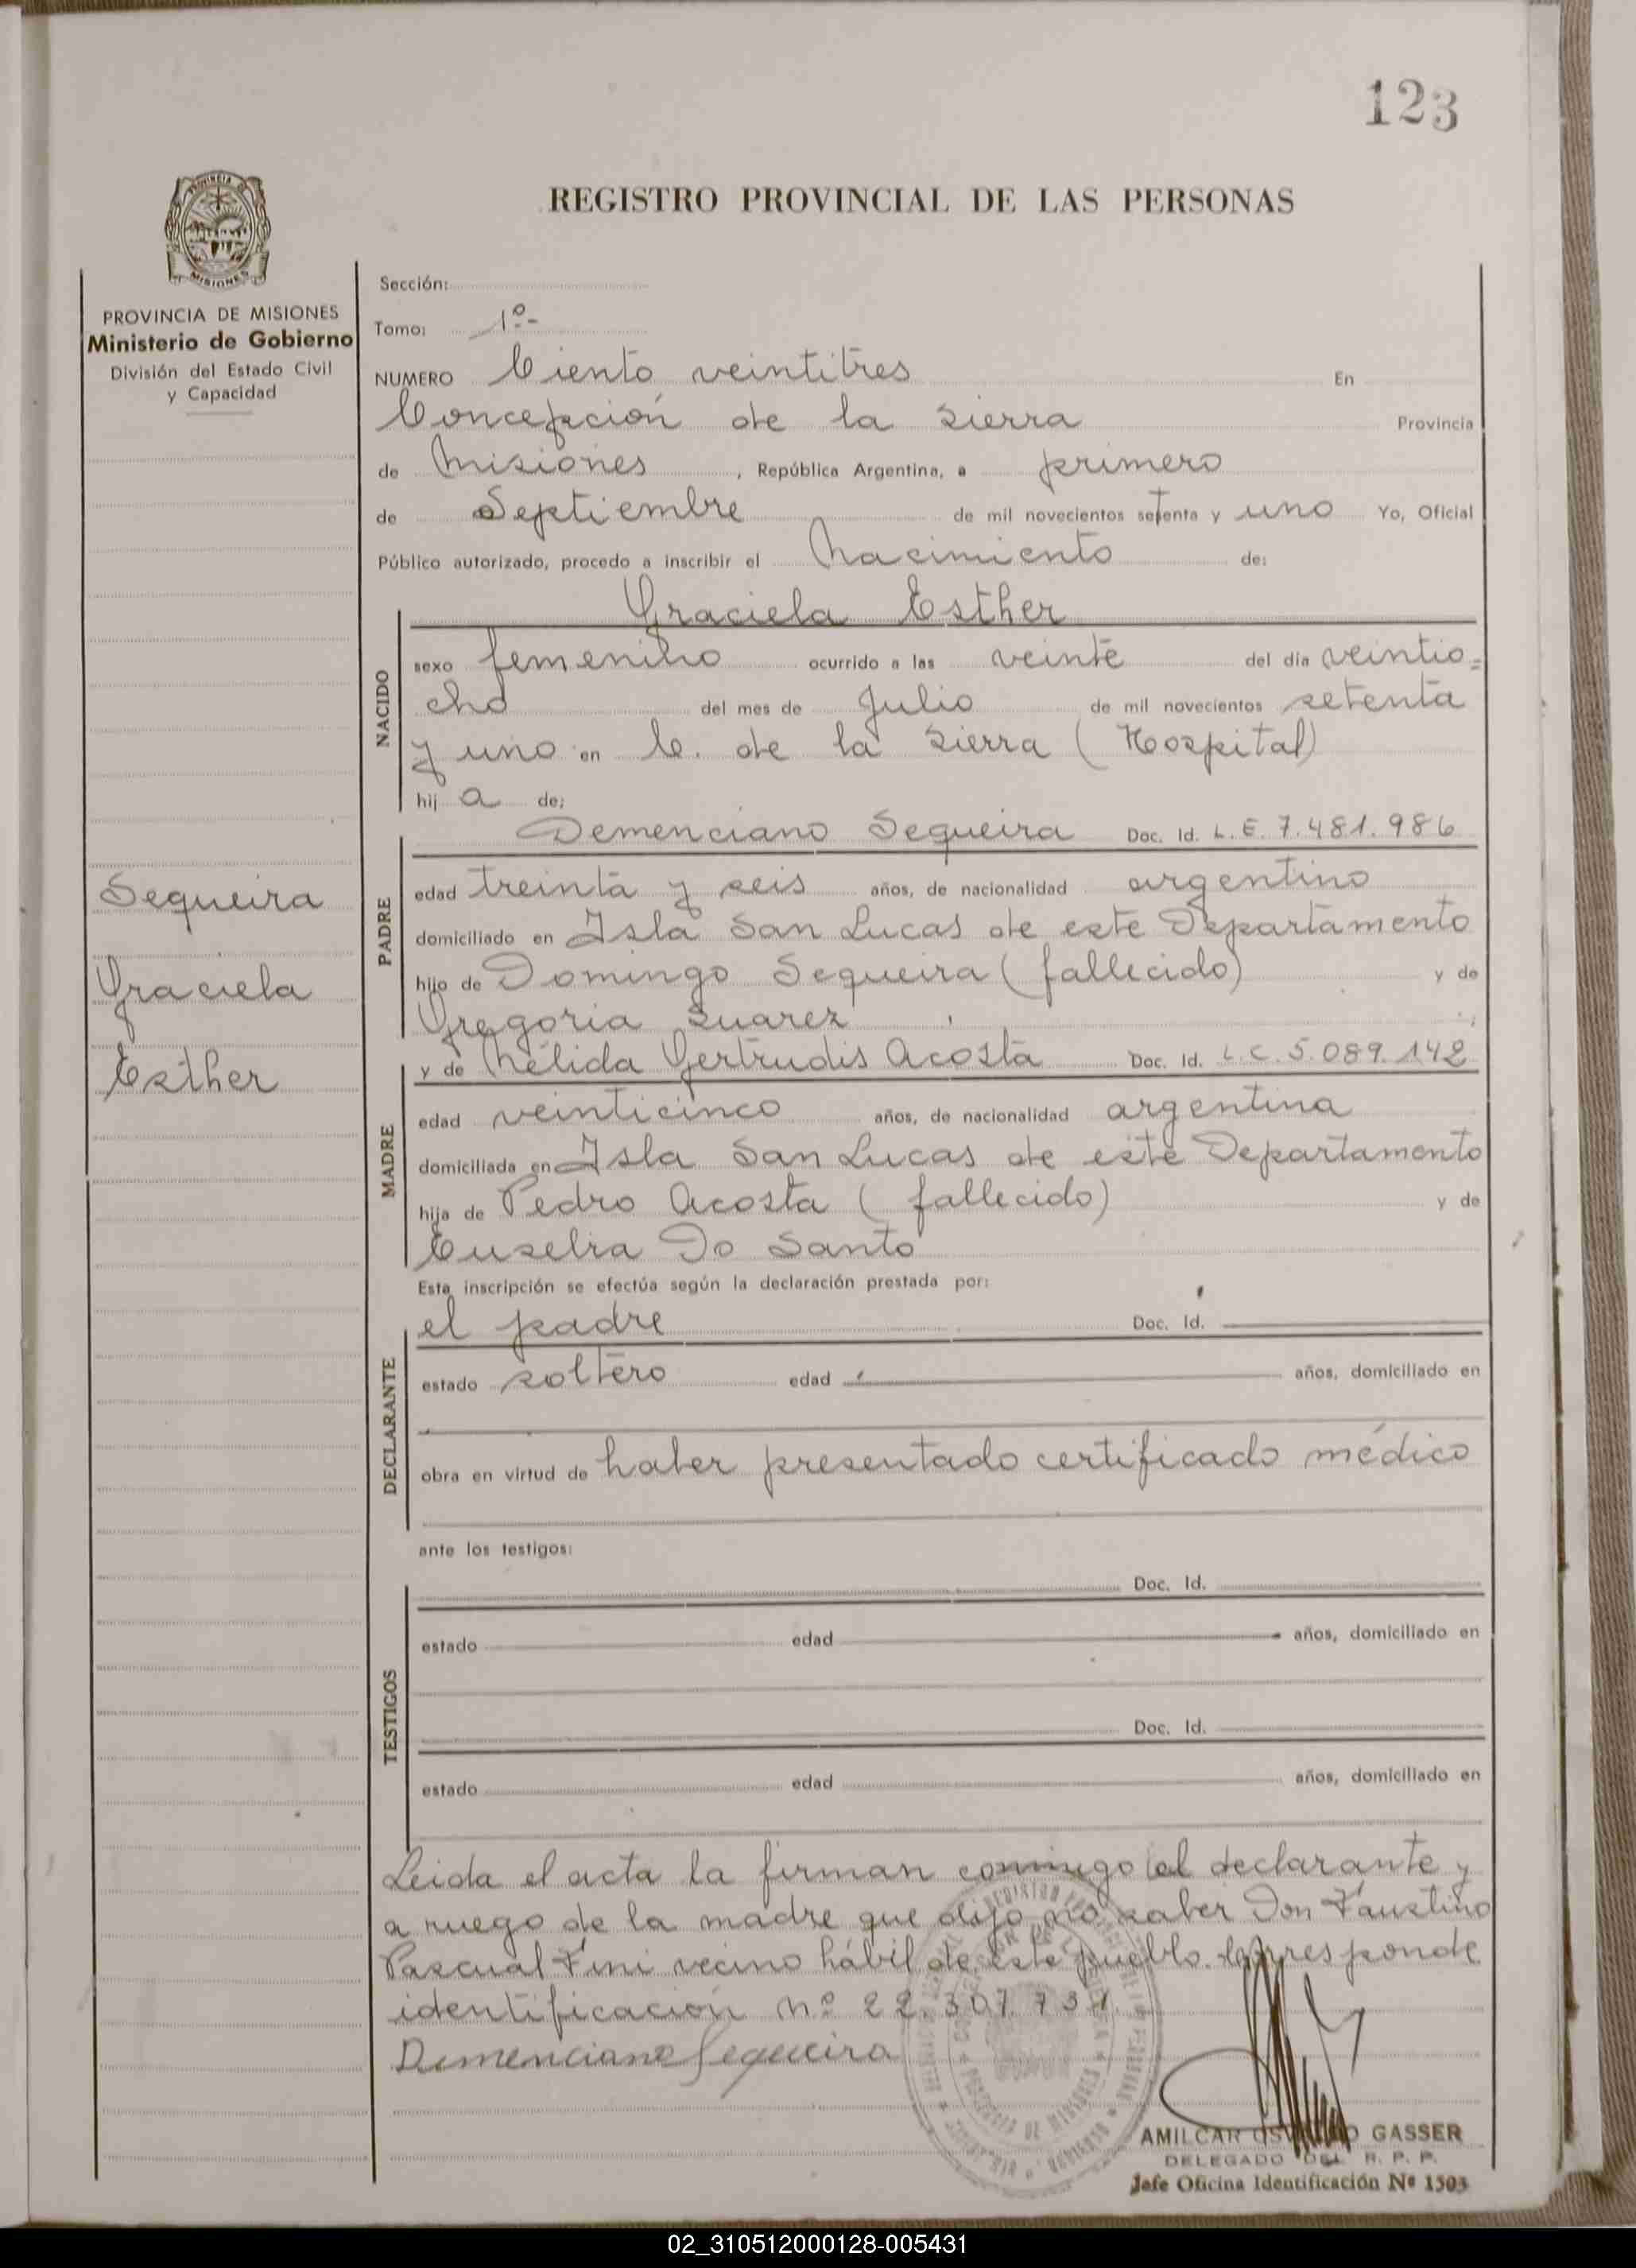 123
REGISTRO PROVINCIAL DE LAS PERSONAS
PROVINCIA DE MISIONES
Ministerio de Gobierno
División del Estado Civil
y Capacidad
Sección:
Tomo: 1º-
NUMERO Ciento veintitres En
Concepción de la Sierra Provincia
de Misiones, República Argentina, a primero
de Septiembre de mil novecientos setenta y uno Yo, Oficial
Público autorizado, procedo a inscribir el Nacimiento de:
Graciela Esther
NACIDO
sexo femenino ocurrido a las veinte del día veintio=
cho del mes de Julio de mil novecientos setenta
y uno en C. de la Sierra (Hospital)
hij a de:
Sequeira
Graciela
Esther
PADRE
Demenciano Sequeira Doc. Id. L.E. 7.481.986
edad treinta y seis años, de nacionalidad argentino
domiciliado en Isla San Lucas de este Departamento
hijo de Domingo Sequeira (fallecido) y de
Gregoria Suarez
MADRE
y de Nélida Gertrudis Acosta Doc. Id. L.C. 5.089.142
edad veinticinco años, de nacionalidad argentina
domiciliada en Isla San Lucas de este Departamento
hija de Pedro Acosta (fallecido) y de
Euselia Do Santo
Esta inscripción se efectúa según la declaración prestada por:
DECLARANTE
el padre Doc. Id.
estado soltero edad años, domiciliado en
obra en virtud de haber presentado certificado médico
ante los testigos:
TESTIGOS
Doc. Id.
estado edad años, domiciliado en
Doc. Id.
estado edad años, domiciliado en
Leida el acta la firman conmigo el declarante y
a ruego de la madre que dijo no saber Don Faustino
Pascual Fini vecino hábil de este pueblo. Corresponde
identificación Nº 22.307.731.
Demenciano Sequeira
AMILCAR OSVALDO GASSER
DELEGADO DEL R. P. P.
Jefe Oficina Identificación Nº 1503
02_310512000128-005431